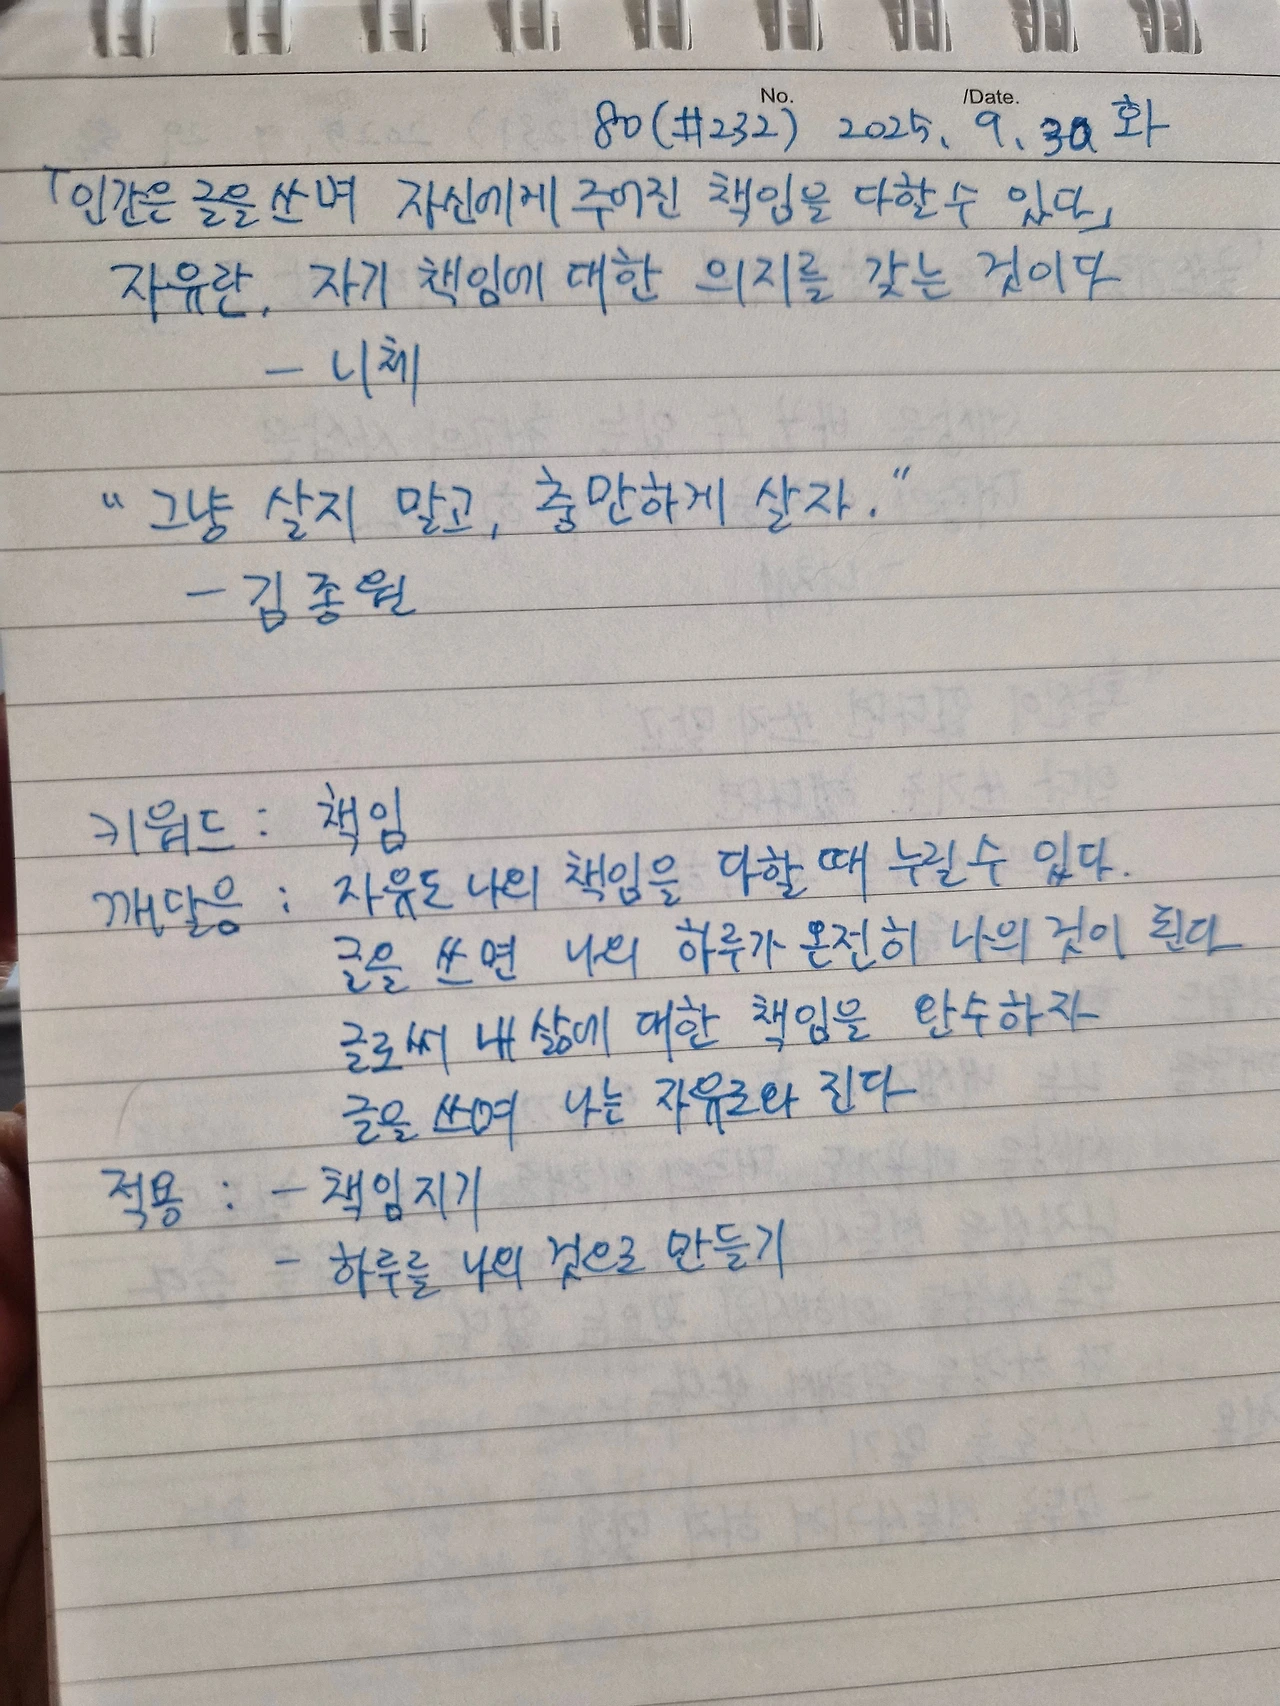 No. /Date.
80(#232) 2025. 9. 30 화
「인간은 글을 쓰며 자신에게 주어진 책임을 다할수 있다」
자유란, 자기 책임에 대한 의지를 갖는 것이다
- 니체
“그냥 살지 말고, 충만하게 살자.”
- 김종원
키워드 : 책임
깨달음 : 자유도 나의 책임을 다할 때 누릴수 있다.
글을 쓰면 나의 하루가 온전히 나의 것이 된다
글로써 내 삶에 대한 책임을 완수하자
글을 쓰며 나는 자유로와 진다
적용 : - 책임지기
- 하루를 나의 것으로 만들기